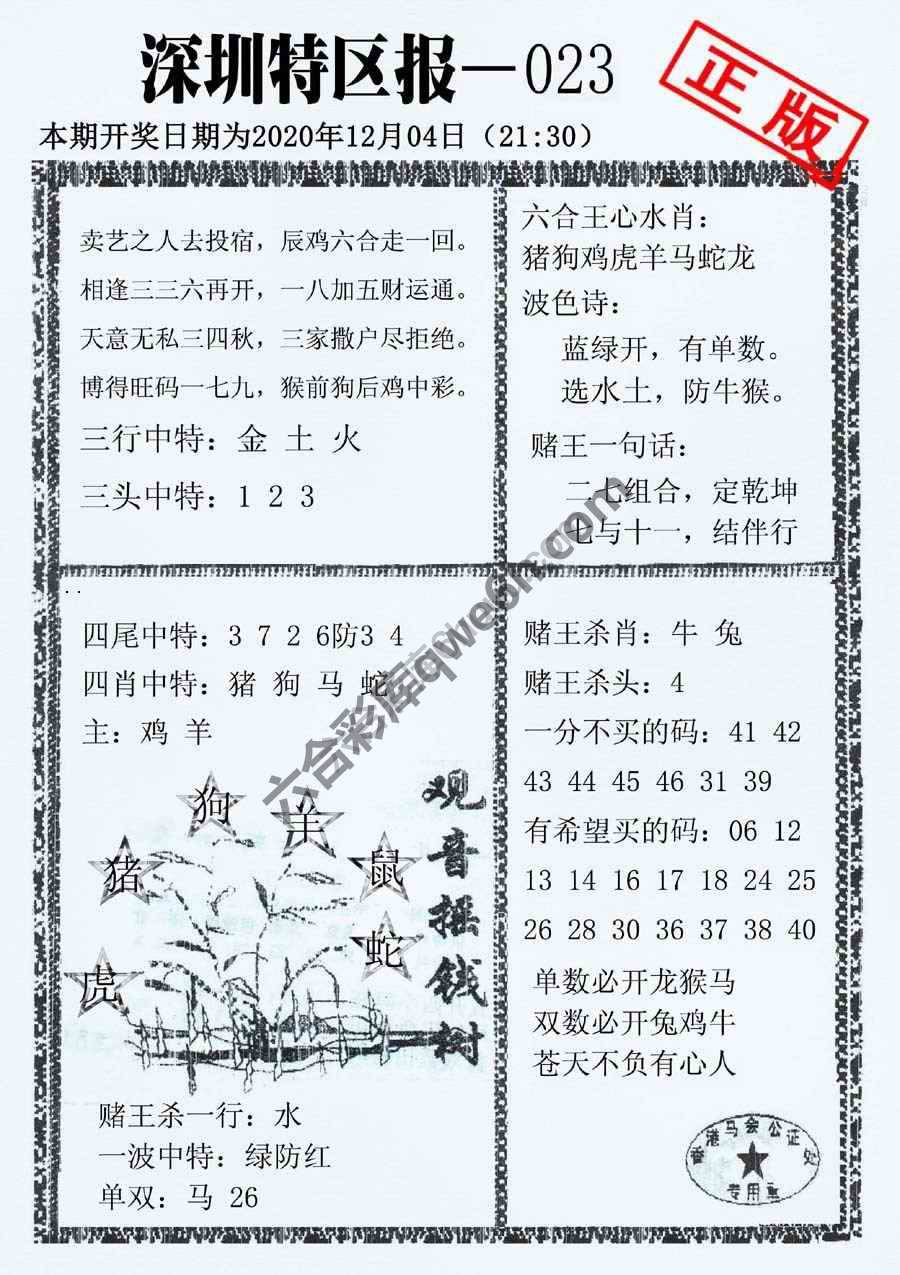 深圳特区报—023
正版
本期开奖日期为2020年12月04日（21:30）
卖艺之人去投宿，辰鸡六合走一回。
相逢三三六再开，一八加五财运通。
天意无私三四秋，三家撒户尽拒绝。
博得旺码一七九，猴前狗后鸡中彩。
三行中特：金 土 火
三头中特：1 2 3
六合王心水肖：
猪狗鸡虎羊马蛇龙
波色诗：
蓝绿开，有单数。
选水土，防牛猴。
赌王一句话：
二七组合，定乾坤
七与十一，结伴行
四尾中特：3 7 2 6防3 4
四肖中特：猪 狗 马 蛇
主：鸡 羊
狗
羊
猪
鼠
蛇
虎
观音摇钱树
赌王杀一行：水
一波中特：绿防红
单双：马 26
赌王杀肖：牛 兔
赌王杀头：4
一分不买的码：41 42
43 44 45 46 31 39
有希望买的码：06 12
13 14 16 17 18 24 25
26 28 30 36 37 38 40
单数必开龙猴马
双数必开兔鸡牛
苍天不负有心人
香港马会公证处
专用章
六合彩库qwe6h.com